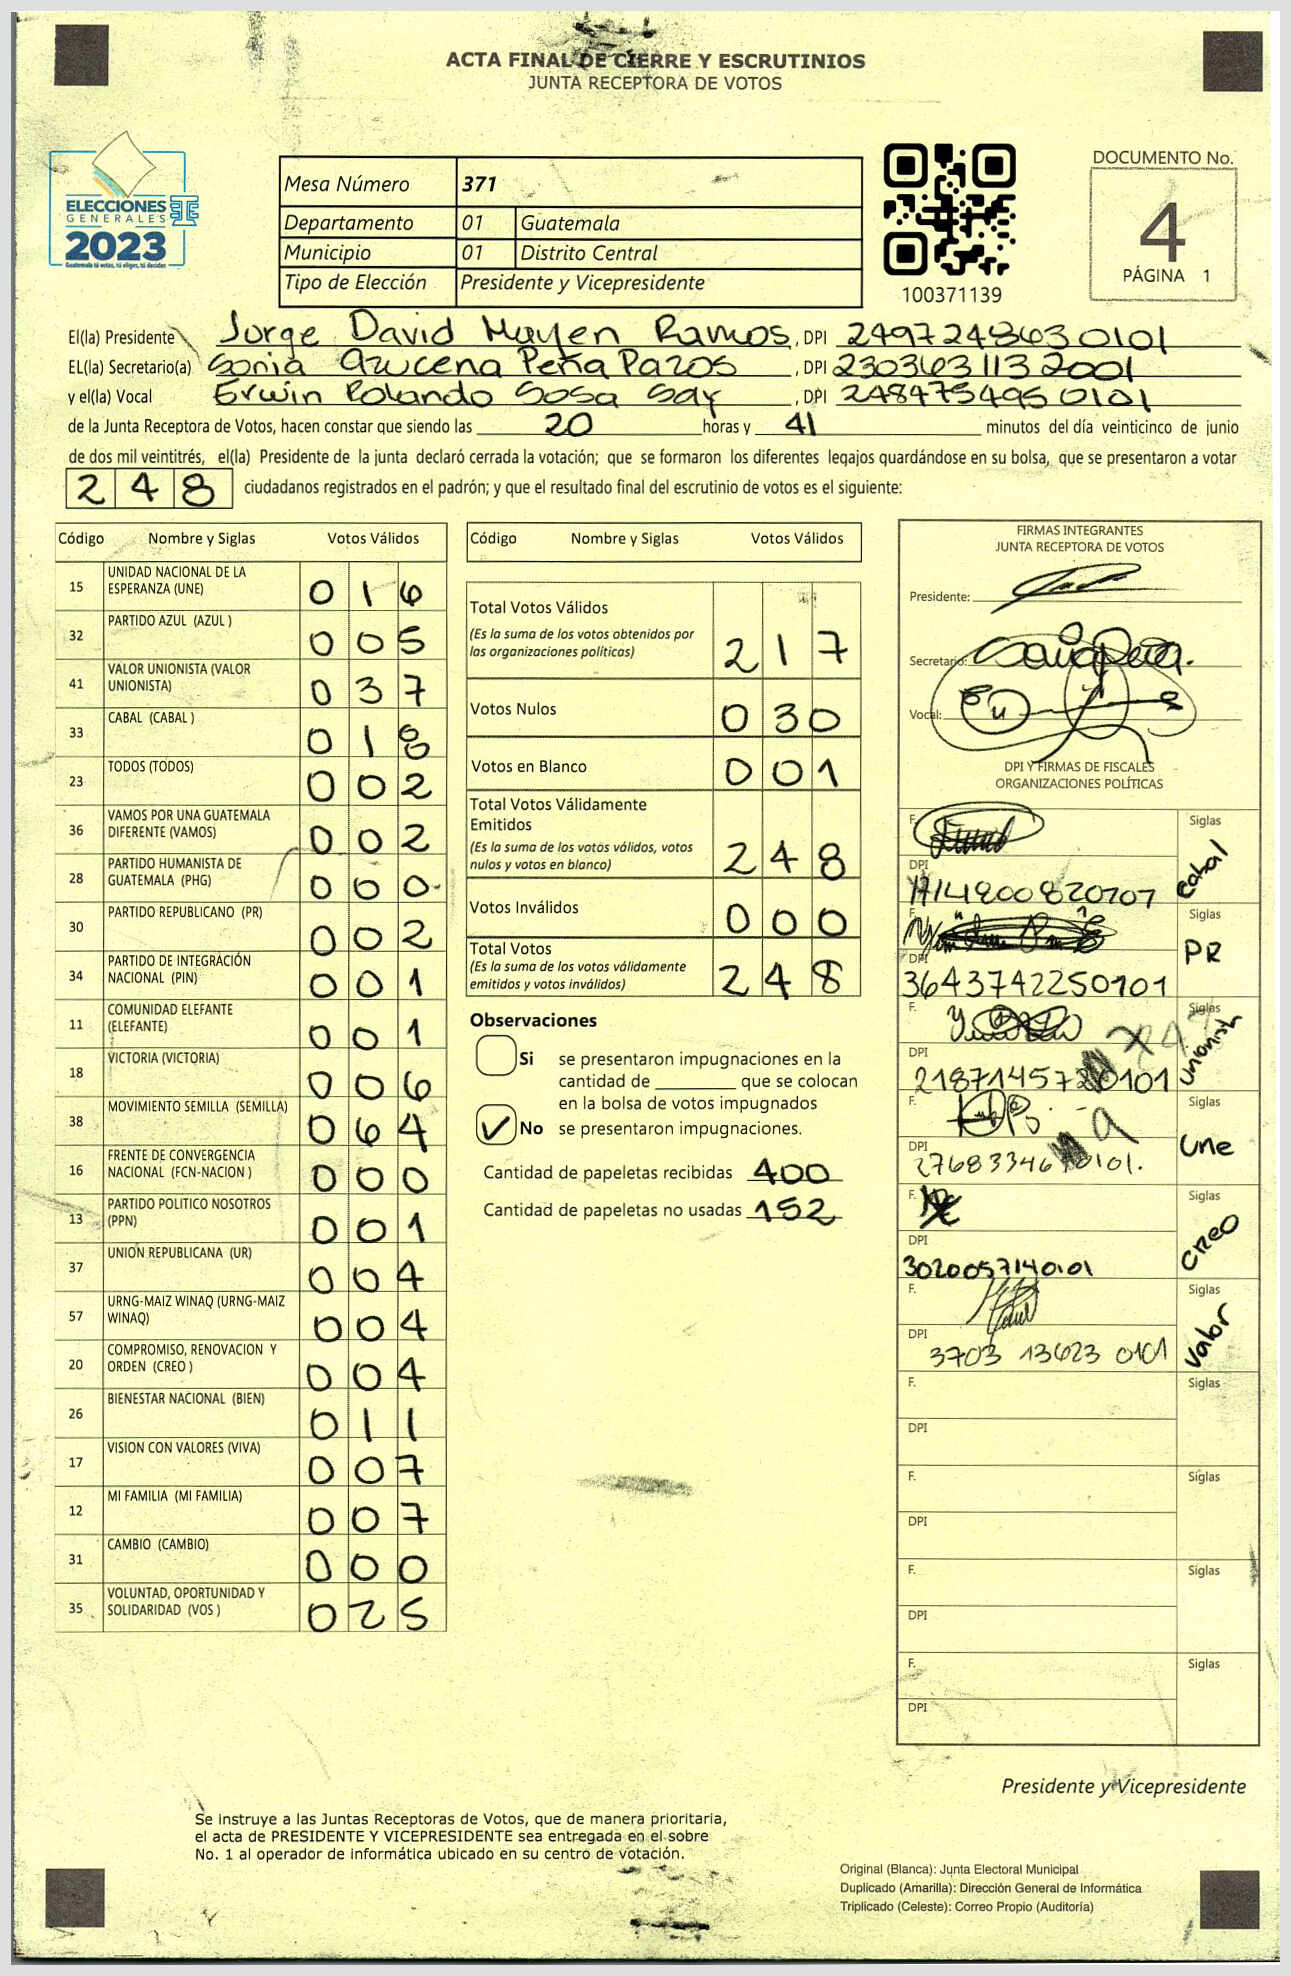 ACTA FINAL DE CIERRE Y ESCRUTINIOS
JUNTA RECEPTORA DE VOTOS
ELECCIONES
GENERALES
2023
Guatemala tú votas, tú eliges, tú decides
Mesa Número 371
Departamento 01 Guatemala
Municipio 01 Distrito Central
Tipo de Elección Presidente y Vicepresidente
100371139
DOCUMENTO No.
4
PÁGINA 1
El(la) Presidente Jorge David Muyen Ramos, DPI 2497248630101
EL(la) Secretario(a) Sonia Azucena Peña Pazos, DPI 2303631132001
y el(la) Vocal Erwin Rolando Sosa Say, DPI 2484754950101
de la Junta Receptora de Votos, hacen constar que siendo las 20 horas y 41 minutos del día veinticinco de junio
de dos mil veintitrés, el(la) Presidente de la junta declaró cerrada la votación; que se formaron los diferentes legajos quardándose en su bolsa, que se presentaron a votar
248 ciudadanos registrados en el padrón; y que el resultado final del escrutinio de votos es el siguiente:
Código Nombre y Siglas Votos Válidos
15 UNIDAD NACIONAL DE LA ESPERANZA (UNE) 016
32 PARTIDO AZUL (AZUL ) 005
41 VALOR UNIONISTA (VALOR UNIONISTA) 037
33 CABAL (CABAL ) 018
23 TODOS (TODOS) 002
36 VAMOS POR UNA GUATEMALA DIFERENTE (VAMOS) 002
28 PARTIDO HUMANISTA DE GUATEMALA (PHG) 000
30 PARTIDO REPUBLICANO (PR) 002
34 PARTIDO DE INTEGRACIÓN NACIONAL (PIN) 001
11 COMUNIDAD ELEFANTE (ELEFANTE) 001
18 VICTORIA (VICTORIA) 006
38 MOVIMIENTO SEMILLA (SEMILLA) 064
16 FRENTE DE CONVERGENCIA NACIONAL (FCN-NACION ) 000
13 PARTIDO POLITICO NOSOTROS (PPN) 001
37 UNION REPUBLICANA (UR) 004
57 URNG-MAIZ WINAQ (URNG-MAIZ WINAQ) 004
20 COMPROMISO, RENOVACION Y ORDEN (CREO ) 004
26 BIENESTAR NACIONAL (BIEN) 011
17 VISION CON VALORES (VIVA) 007
12 MI FAMILIA (MI FAMILIA) 007
31 CAMBIO (CAMBIO) 000
35 VOLUNTAD, OPORTUNIDAD Y SOLIDARIDAD (VOS ) 025
Código Nombre y Siglas Votos Válidos
Total Votos Válidos 217
(Es la suma de los votos obtenidos por
las organizaciones políticas)
Votos Nulos 030
Votos en Blanco 001
Total Votos Válidamente
Emitidos
(Es la suma de los votos válidos, votos
nulos y votos en blanco) 248
Votos Inválidos 000
Total Votos
(Es la suma de los votos válidamente
emitidos y votos inválidos) 248
Observaciones
Si se presentaron impugnaciones en la
cantidad de ________ que se colocan
en la bolsa de votos impugnados
No se presentaron impugnaciones.
Cantidad de papeletas recibidas 400
Cantidad de papeletas no usadas 152
FIRMAS INTEGRANTES
JUNTA RECEPTORA DE VOTOS
Presidente:
Secretario:
Vocal:
DPI Y FIRMAS DE FISCALES
ORGANIZACIONES POLÍTICAS
F. Siglas
DPI Cabal
F. Siglas
DPI PR
3643742250101
F. Siglas
DPI Unionista
F. Siglas
DPI Une
F. Siglas
DPI Creo
3020057140101
F. Siglas
DPI Valor
3703 13623 0101
F. Siglas
DPI
F. Siglas
DPI
F. Siglas
DPI
F. Siglas
DPI
Presidente y Vicepresidente
Se instruye a las Juntas Receptoras de Votos, que de manera prioritaria,
el acta de PRESIDENTE Y VICEPRESIDENTE sea entregada en el sobre
No. 1 al operador de informática ubicado en su centro de votación.
Original (Blanca): Junta Electoral Municipal
Duplicado (Amarilla): Dirección General de Informática
Triplicado (Celeste): Correo Propio (Auditoría)